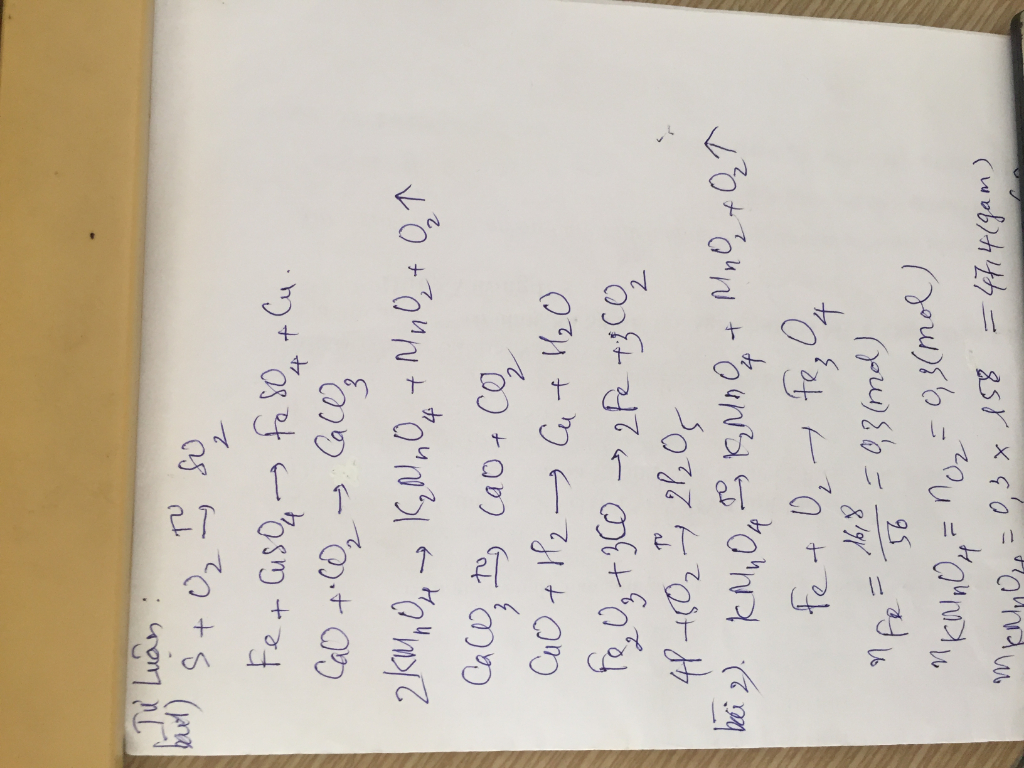 Tự Luận:
bài1) S + O₂ t⁰→ SO₂
Fe + CuSO₄ → FeSO₄ + Cu.
CaO + CO₂ → CaCO₃
2KMnO₄ → K₂MnO₄ + MnO₂ + O₂↑
CaCO₃ t⁰→ CaO + CO₂
CuO + H₂ → Cu + H₂O
Fe₂O₃ + 3CO → 2Fe + 3CO₂
4P + 5O₂ t⁰→ 2P₂O₅
bài 2). KMnO₄ t⁰→ K₂MnO₄ + MnO₂ + O₂↑
Fe + O₂ → Fe₃O₄
nFe = 16,8/56 = 0,3 (mol)
nKMnO₄ = nO₂ = 0,3 (mol)
mKMnO₄ = 0,3 × 158 = 47,4 (gam)